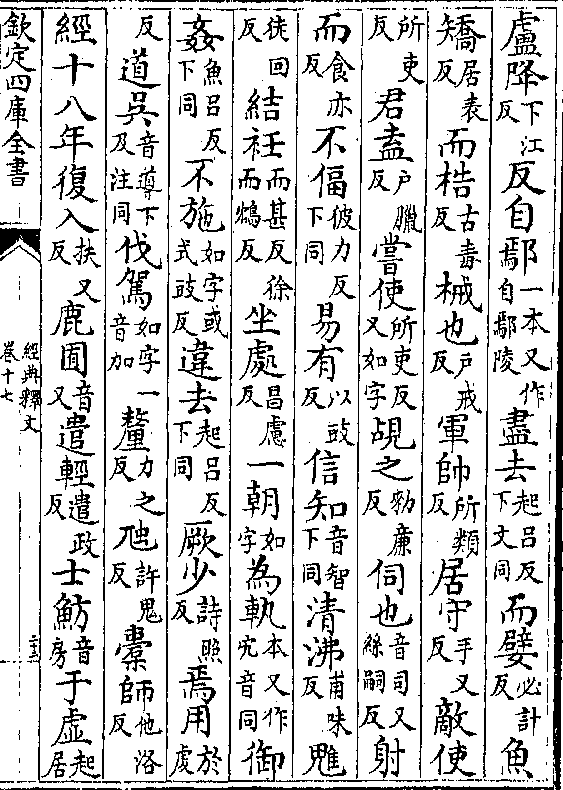 盧降下江反反自鄢一本又作鄢自鄢陵盡去起呂反下文同而嬖必計反魚
矯居表反而梏古毒反械也戶戒反軍帥所類反居守手又反敵使
所吏反君盍戶臘反嘗使所吏反又如字覘之勑廉反伺也音司又絲嗣反射
而食亦反不偪彼力反下同易有以豉反信知音智下同清沸甫味反魋
徒回反結衽而甚反徐而鴆反坐處昌慮反一朝如字為軌本又作宄音同御
姦魚呂反下同不施如字或式豉反違去起呂反下同厥少詩照反焉用於虔
反道吳音導下及注同伐駕如字一音加釐力之反虺許鬼反橐師他洛反
經十八年復入扶又反鹿囿音又遣輕遣政反士魴音房于虛起居
欽定四庫全書
經典釋文
卷十七